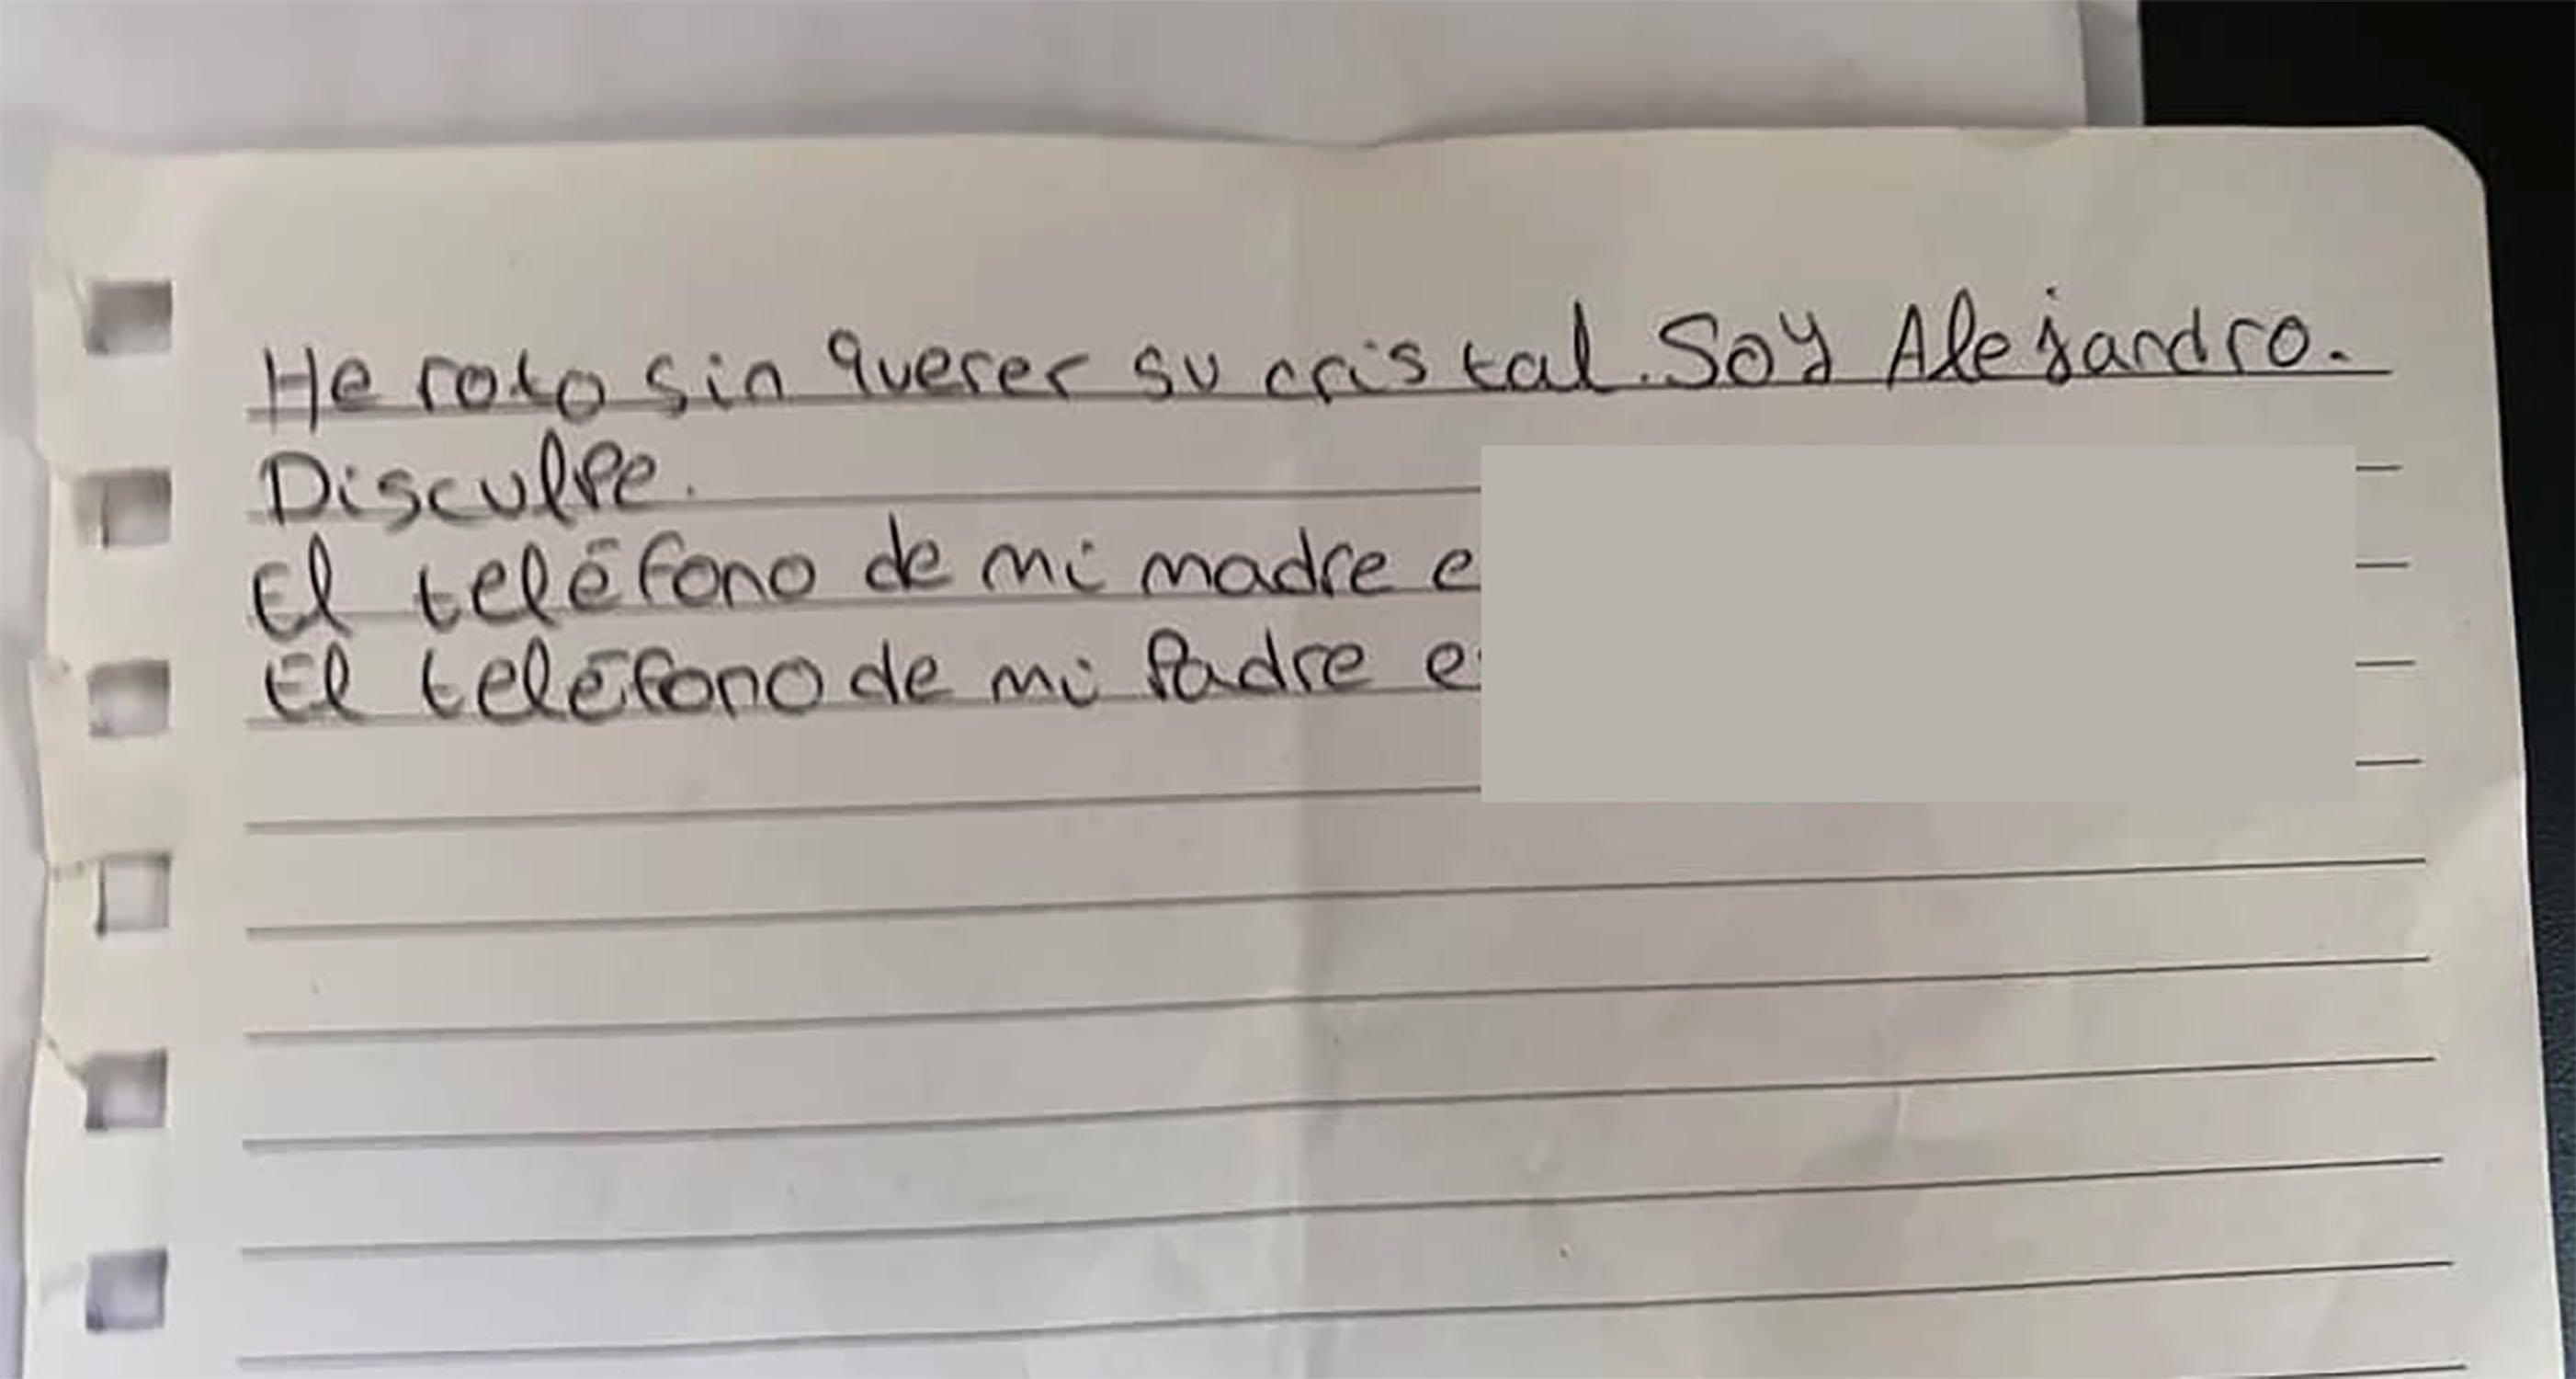 He roto sin querer su cristal. Soy Alejandro.
Disculpe.
El teléfono de mi madre e
El teléfono de mi Padre e